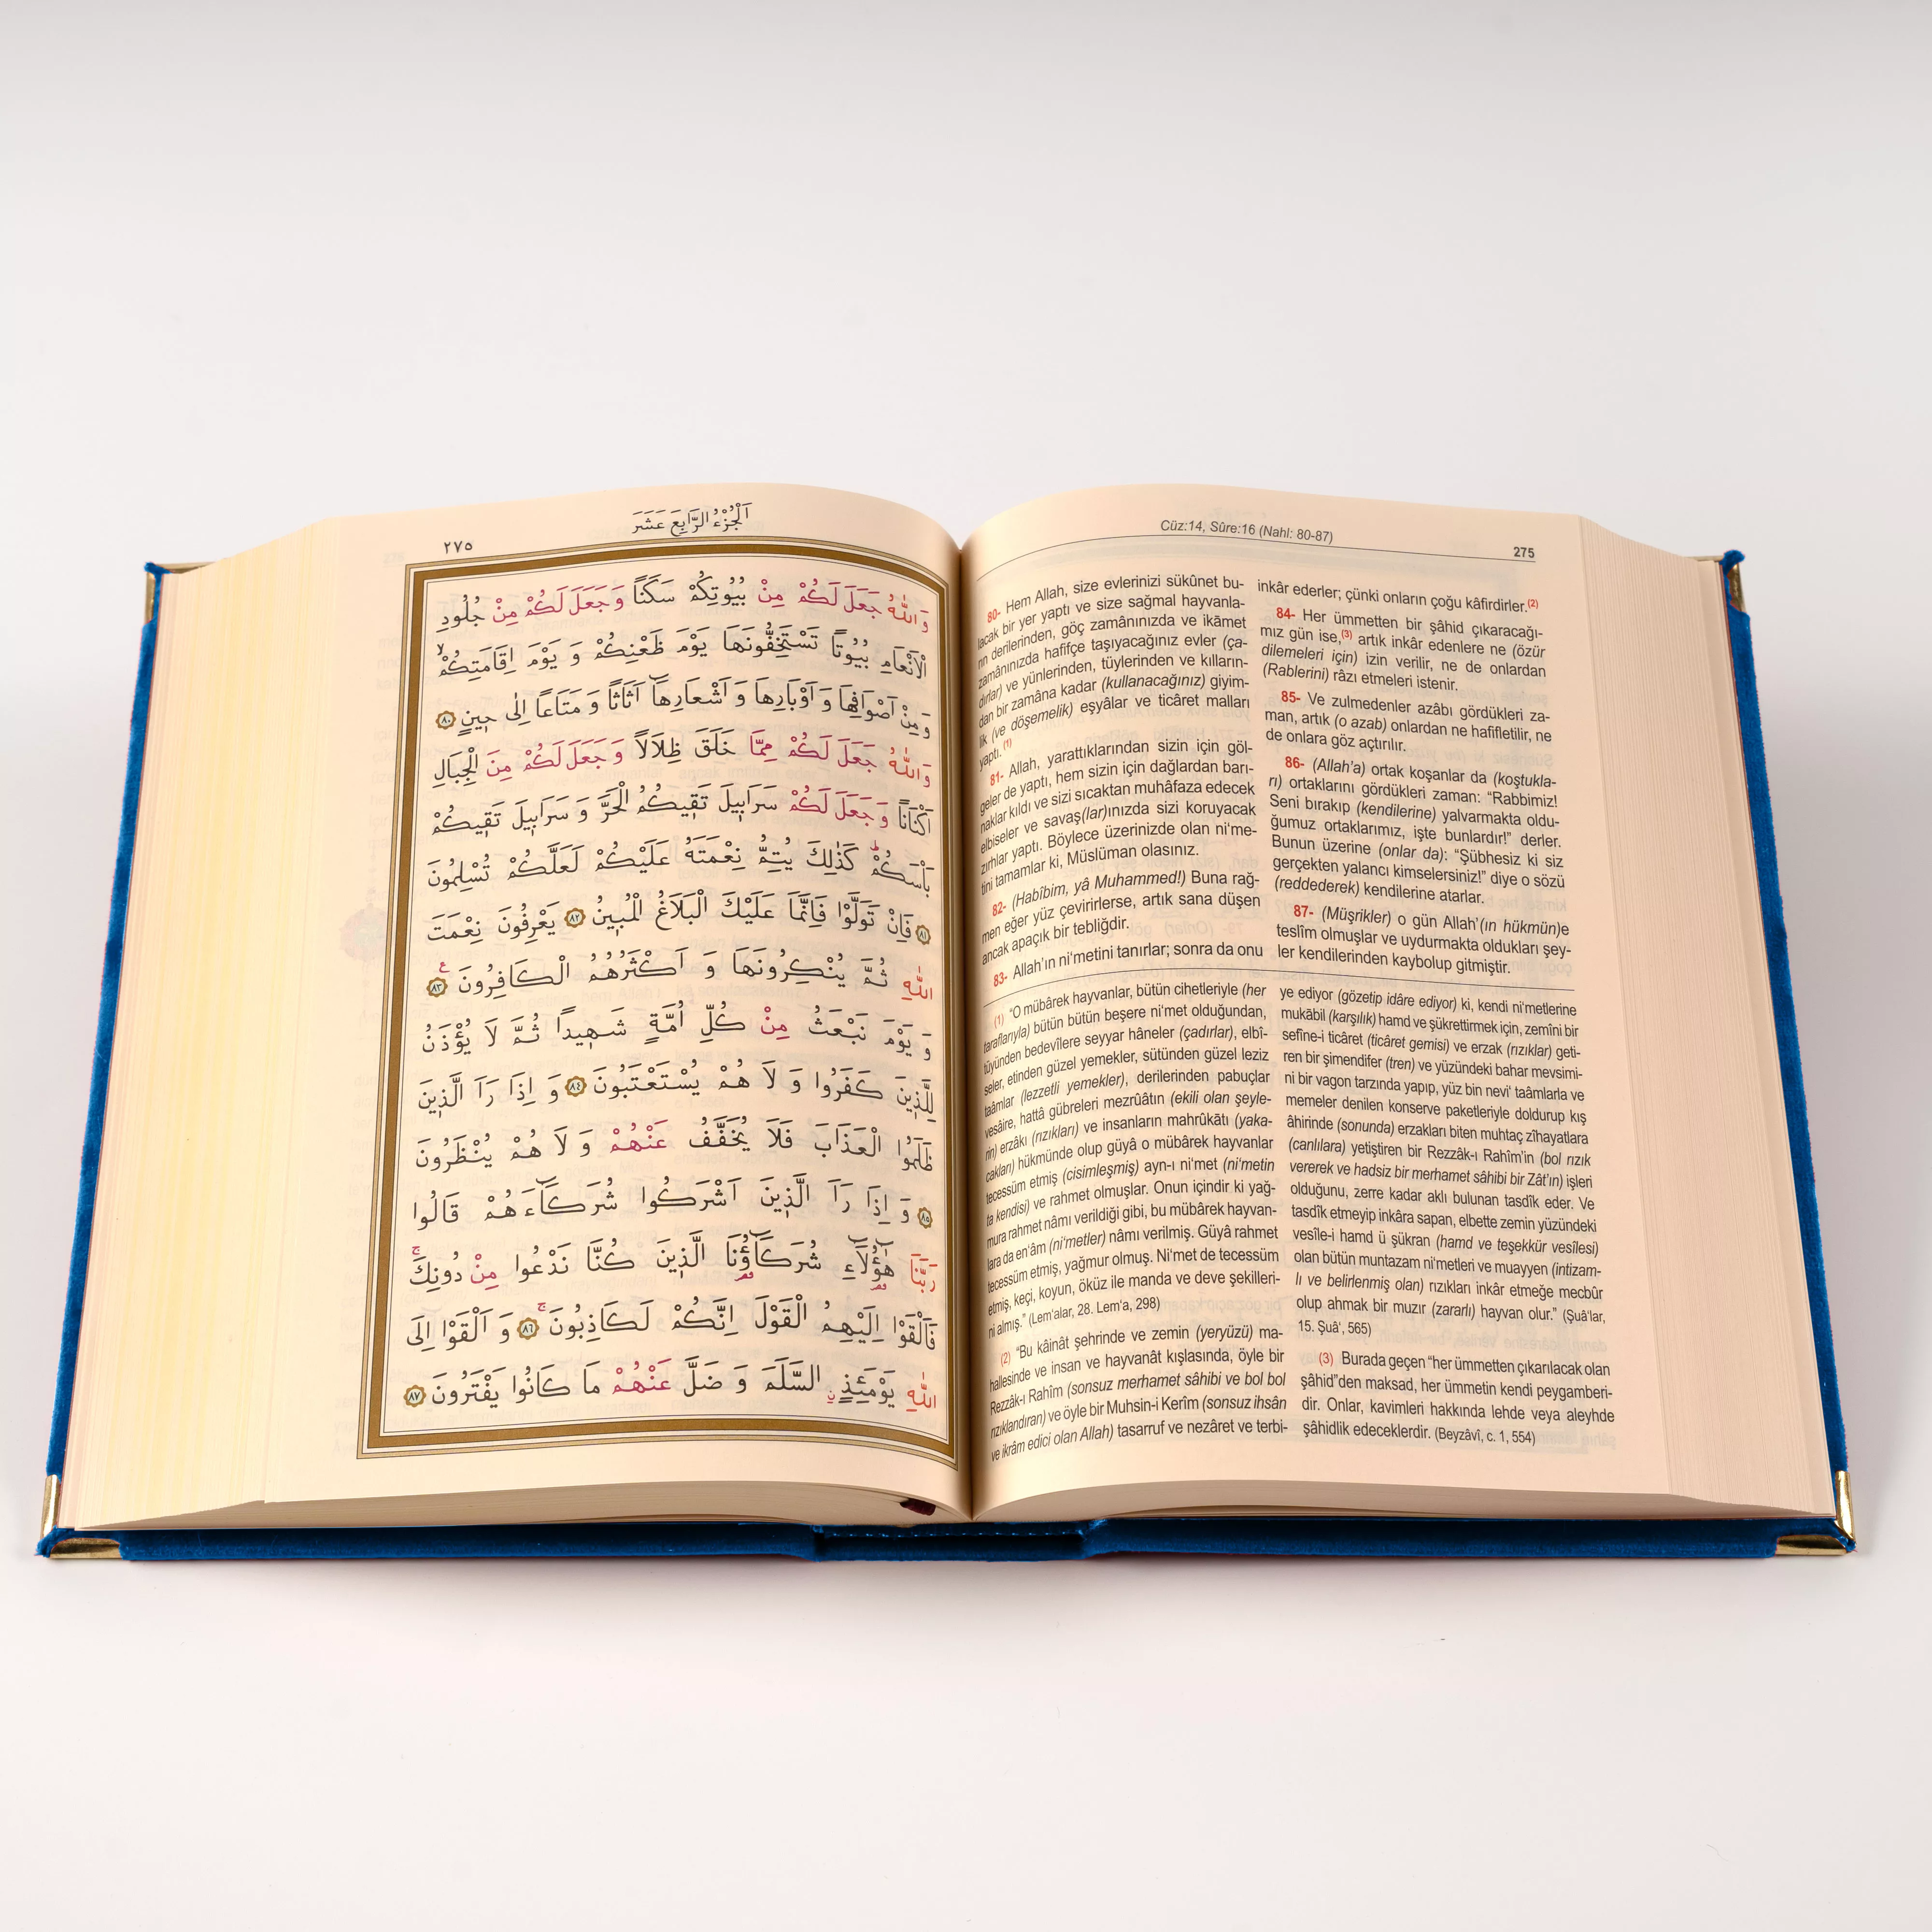 اَلْجُزْءُ الرَّابِعَ عَشَرَ
٢٧٥
وَاللّٰهُ جَعَلَ لَكُمْ مِنْ بُيُوتِكُمْ سَكَنًا وَجَعَلَ لَكُمْ مِنْ جُلُودِ
الْاَنْعَامِ بُيُوتًا تَسْتَخِفُّونَهَا يَوْمَ ظَعْنِكُمْ وَ يَوْمَ اِقَامَتِكُمْۙ
وَ مِنْ اَصْوَافِهَا وَ اَوْبَارِهَا وَ اَشْعَارِهَٓا اَثَاثًا وَ مَتَاعًا اِلٰى ح۪ينٍ ٨٠
وَاللّٰهُ جَعَلَ لَكُمْ مِمَّا خَلَقَ ظِلَالًا وَجَعَلَ لَكُمْ مِنَ الْجِبَالِ
اَكْنَانًا وَجَعَلَ لَكُمْ سَرَاب۪يلَ تَق۪يكُمُ الْحَرَّ وَ سَرَاب۪يلَ تَق۪يكُمْ
بَأْسَكُمْۜ كَذٰلِكَ يُتِمُّ نِعْمَتَهُ عَلَيْكُمْ لَعَلَّكُمْ تُسْلِمُونَ
٨١ فَاِنْ تَوَلَّوْا فَاِنَّمَا عَلَيْكَ الْبَلَاغُ الْمُب۪ينُ ٨٢ يَعْرِفُونَ نِعْمَتَ
اللّٰهِ ثُمَّ يُنْكِرُونَهَا وَ اَكْثَرُهُمُ الْكَافِرُونَ ٨٣ ع
وَ يَوْمَ نَبْعَثُ مِنْ كُلِّ اُمَّةٍ شَه۪يدًا ثُمَّ لَا يُؤْذَنُ
لِلَّذ۪ينَ كَفَرُوا وَ لَا هُمْ يُسْتَعْتَبُونَ ٨٤ وَ اِذَا رَاَ الَّذ۪ينَ
ظَلَمُوا الْعَذَابَ فَلَا يُخَفَّفُ عَنْهُمْ وَ لَا هُمْ يُنْظَرُونَ
٨٥ وَ اِذَا رَاَ الَّذ۪ينَ اَشْرَكُوا شُرَكَٓاءَهُمْ قَالُوا
رَبَّنَا هٰٓؤُ۬لَٓاءِ شُرَكَٓاؤُ۬نَا الَّذ۪ينَ كُنَّا نَدْعُوا مِنْ دُونِكَۚ
فَاَلْقَوْا اِلَيْهِمُ الْقَوْلَ اِنَّكُمْ لَكَاذِبُونَۚ ٨٦ وَ اَلْقَوْا اِلَى
اللّٰهِ يَوْمَئِذٍۨ السَّلَمَ وَ ضَلَّ عَنْهُمْ مَا كَانُوا يَفْتَرُونَ ٨٧
Cüz:14, Sûre:16 (Nahl: 80-87)
275
80- Hem Allah, size evlerinizi sükûnet bu-
lacak bir yer yaptı ve size sağmal hayvanla-
rın derilerinden, göç zamânınızda ve ikāmet
zamânınızda hafifçe taşıyacağınız evler (ça-
dırlar) ve yünlerinden, tüylerinden ve kılların-
dan bir zamâna kadar (kullanacağınız) giyim-
lik (ve döşemelik) eşyâlar ve ticâret malları
yaptı. (1)
81- Allah, yarattıklarından sizin için göl-
geler de yaptı, hem sizin için dağlardan barı-
naklar kıldı ve sizi sıcaktan muhâfaza edecek
elbiseler ve savaş(lar)ınızda sizi koruyacak
zırhlar yaptı. Böylece üzerinizde olan ni'me-
tini tamamlar ki, Müslüman olasınız.
82- (Habîbim, yâ Muhammed!) Buna rağ-
men eğer yüz çevirirlerse, artık sana düşen
ancak apaçık bir tebliğdir.
83- Allah'ın ni'metini tanırlar; sonra da onu
inkâr ederler; çünki onların çoğu kâfirdirler.(2)
84- Her ümmetten bir şâhid çıkaracağı-
mız gün ise,(3) artık inkâr edenlere ne (özür
dilemeleri için) izin verilir, ne de onlardan
(Rablerini) râzı etmeleri istenir.
85- Ve zulmedenler azâbı gördükleri za-
man, artık (o azab) onlardan ne hafifletilir, ne
de onlara göz açtırılır.
86- (Allah'a) ortak koşanlar da (koştukla-
rı) ortaklarını gördükleri zaman: “Rabbimiz!
Seni bırakıp (kendilerine) yalvarmakta oldu-
ğumuz ortaklarımız, işte bunlardır!” derler.
Bunun üzerine (onlar da): “Şübhesiz ki siz
gerçekten yalancı kimselersiniz!” diye o sözü
(reddederek) kendilerine atarlar.
87- (Müşrikler) o gün Allah'(ın hükmün)e
teslîm olmuşlar ve uydurmakta oldukları şey-
ler kendilerinden kaybolup gitmiştir.
(1) “O mübârek hayvanlar, bütün cihetleriyle (her
taraflarıyla) bütün bütün beşere ni'met olduğundan,
tüyünden bedevîlere seyyar hâneler (çadırlar), elbî-
seler, etinden güzel yemekler, sütünden güzel leziz
taâmlar (lezzetli yemekler), derilerinden pabuçlar
vesâire, hattâ gübreleri mezrûâtın (ekili olan şeyle-
rin) erzâkı (rızıkları) ve insanların mahrûkātı (yaka-
cakları) hükmünde olup gûyâ o mübârek hayvanlar
tecessüm etmiş (cisimleşmiş) ayn-ı ni'met (ni'metin
ta kendisi) ve rahmet olmuşlar. Onun içindir ki yağ-
mura rahmet nâmı verildiği gibi, bu mübârek hayvan-
lara da en'âm (ni'metler) nâmı verilmiş. Gûyâ rahmet
tecessüm etmiş, yağmur olmuş. Ni'met de tecessüm
etmiş, keçi, koyun, öküz ile manda ve deve şekilleri-
ni almış.” (Lem'alar, 28. Lem'a, 298)
(2) “Bu kâinât şehrinde ve zemin (yeryüzü) ma-
hallesinde ve insan ve hayvanât kışlasında, öyle bir
Rezzâk-ı Rahîm (sonsuz merhamet sâhibi ve bol bol
rızıklandıran) ve öyle bir Muhsin-i Kerîm (sonsuz ihsân
ve ikrâm edici olan Allah) tasarruf ve nezâret ve terbi-
ye ediyor (gözetip idâre ediyor) ki, kendi ni'metlerine
mukābil (karşılık) hamd ve şükrettirmek için, zemîni bir
sefîne-i ticâret (ticâret gemisi) ve erzak (rızıklar) geti-
ren bir şimendifer (tren) ve yüzündeki bahar mevsimi-
ni bir vagon tarzında yapıp, yüz bin nevi' taâmlarla ve
memeler denilen konserve paketleriyle doldurup kış
âhirinde (sonunda) erzakları biten muhtaç zîhayatlara
(canlılara) yetiştiren bir Rezzâk-ı Rahîm'in (bol rızık
vererek ve hadsiz bir merhamet sâhibi bir Zât'ın) işleri
olduğunu, zerre kadar aklı bulunan tasdîk eder. Ve
tasdîk etmeyip inkâra sapan, elbette zemin yüzündeki
vesîle-i hamd ü şükran (hamd ve teşekkür vesîlesi)
olan bütün muntazam ni'metleri ve muayyen (intizam-
lı ve belirlenmiş olan) rızıkları inkâr etmeğe mecbûr
olup ahmak bir muzır (zararlı) hayvan olur.” (Şuâ'lar,
15. Şuâ', 565)
(3) Burada geçen “her ümmetten çıkarılacak olan
şâhid”den maksad, her ümmetin kendi peygamberi-
dir. Onlar, kavimleri hakkında lehde veya aleyhde
şâhidlik edeceklerdir. (Beyzâvî, c. 1, 554)